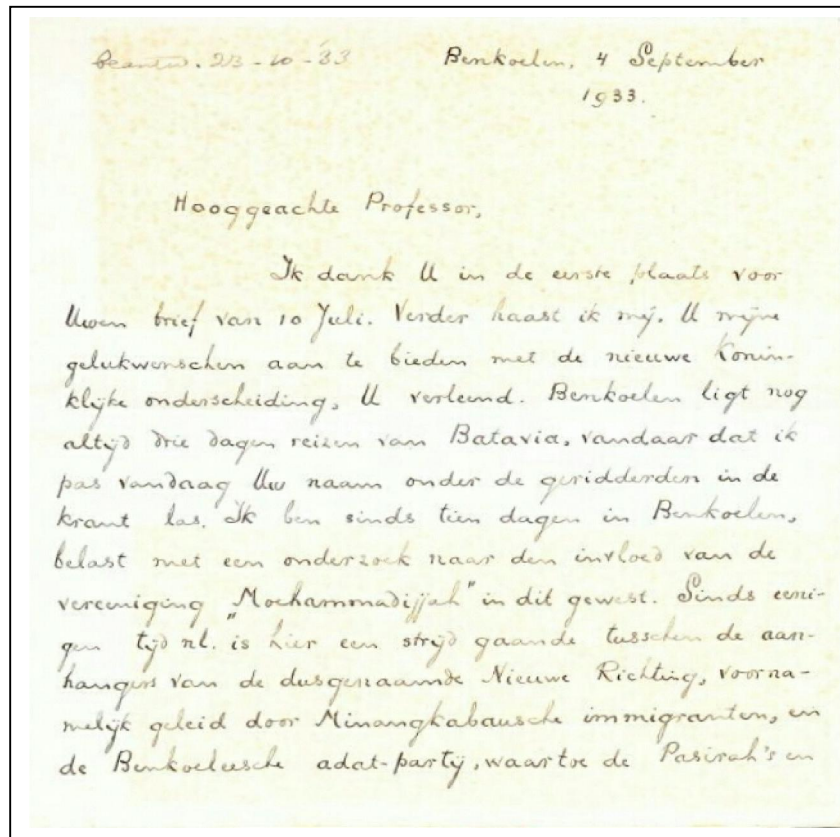 beantw. 23-10-'33
Benkoelen, 4 September
1933.
Hooggeachte Professor,
Ik dank U in de eerste plaats voor
Uwen brief van 10 Juli. Verder haast ik mij, U mijne
gelukwenschen aan te bieden met de nieuwe Konin-
klijke onderscheiding, U verleend. Benkoelen ligt nog
altijd drie dagen reizen van Batavia, vandaar dat ik
pas vandaag Uw naam onder de geridderden in de
krant las. Ik ben sinds tien dagen in Benkoelen,
belast met een onderzoek naar den invloed van de
vereeniging „Moehammadijjah" in dit gewest. Sinds eeni-
gen tijd nl. is hier een strijd gaande tusschen de aan-
hangers van de dusgenaamde Nieuwe Richting, voorna-
melijk geleid door Minangkabausche immigranten, en
de Benkoeleesche adat-partij, waartoe de Pasirah's en